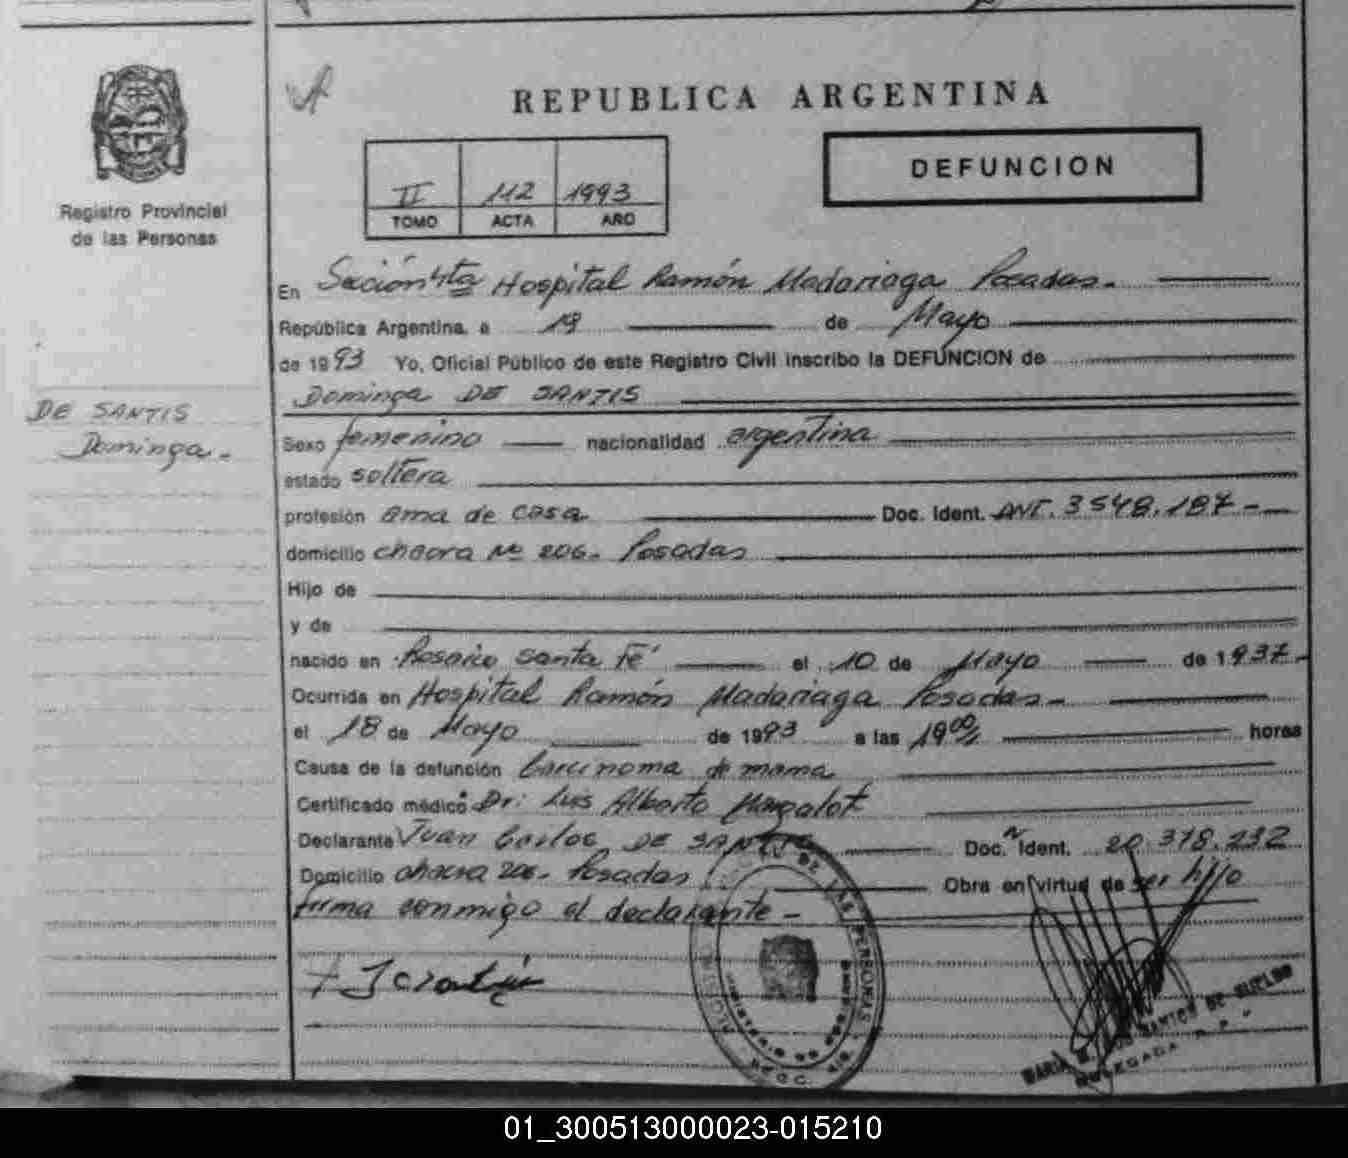 REPUBLICA ARGENTINA
DEFUNCION
II 112 1993
TOMO ACTA AÑO
Registro Provincial
de las Personas
En Sección 4ta Hospital Ramón Madariaga Posadas.
República Argentina, a 19 de Mayo
de 1993 Yo, Oficial Público de este Registro Civil inscribo la DEFUNCION de
Dominga DE SANTIS
DE SANTIS
Dominga.
Sexo femenino nacionalidad argentina
estado soltera
profesión ama de casa Doc. Ident. ANT. 3548.187
domicilio chacra Nº 206. Posadas
Hijo de
y de
nacido en Rosario Santa Fé el 10 de Mayo de 1937
Ocurrida en Hospital Ramón Madariaga Posadas
el 18 de Mayo de 1993 a las 19 00 horas
Causa de la defunción Carcinoma de mama
Certificado médico Dr: Luis Alberto
Declarante Juan Carlos DE SANTIS Doc. Ident. 20.378.232
Domicilio chacra 206. Posadas Obra en virtud de ser hijo
firma conmigo el declarante
DE LAS PERSONAS
MISIONES
MARIA SANTOS DE
DELEGADA R.P.P.
01_300513000023-015210